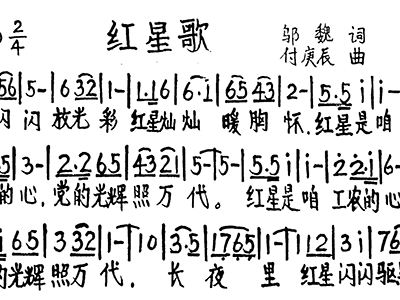 2/4 红星歌 邬 魏 词
付庚辰 曲
56|5-|6 32|1-|1.1 6|6.1|65 43|2-|5.5 i|i-
闪 闪 放光 彩 红星灿灿 暖 胸 怀.红星是咱
5|3-|2.2 65|43 21|5-|5-|5.5 i|i-|2.2.i|6-
的心,党的光辉照万 代。 红星是咱 工农的心
65|3 32|1-|10|3.5|1765|1-|112|3 i|76
的光辉照万 代. 长 夜 里 红星闪闪驱